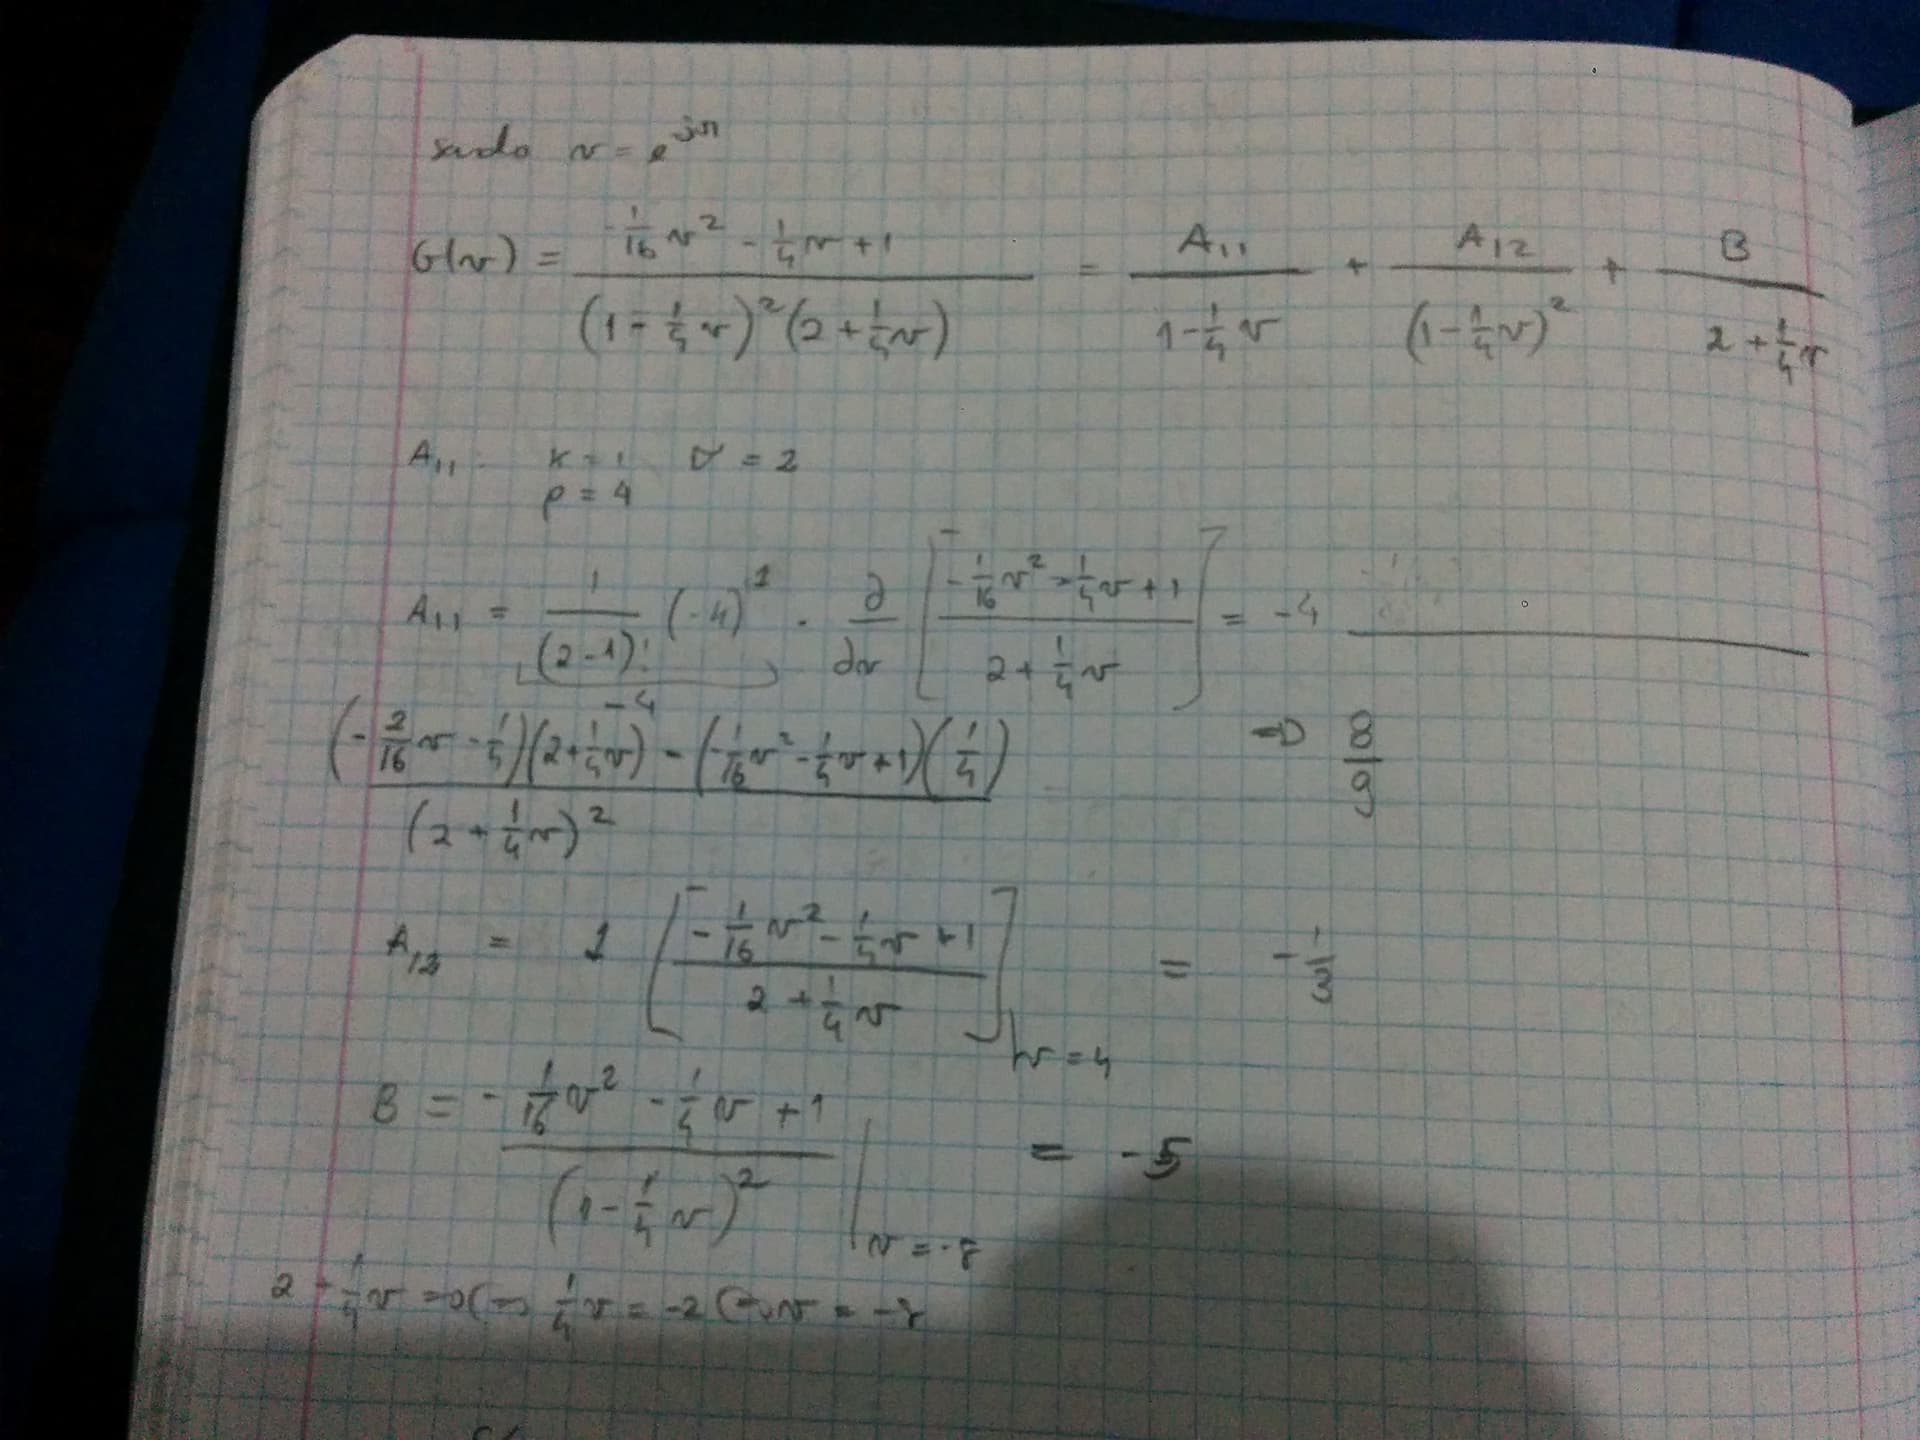 sendo v = e^{jΩ}
G(v) = (-1/16 v² - 1/4 v + 1) / ((1 - 1/4 v)² (2 + 1/4 v)) = A₁₁ / (1 - 1/4 v) + A₁₂ / (1 - 1/4 v)² + B / (2 + 1/4 v)
A₁₁. k = 1 σ = 2
ρ = 4
A₁₁ = 1/(2-1)! (-4)¹ · ∂/∂v [(-1/16 v² - 1/4 v + 1) / (2 + 1/4 v)] = -4
-4
((-2/16 v - 1/4)(2 + 1/4 v) - (-1/16 v² - 1/4 v + 1)(1/4)) / (2 + 1/4 v)² ⇒ 8/9
A₁₂ = 1 [(-1/16 v² - 1/4 v + 1) / (2 + 1/4 v)]|v = 4 = -1/3
B = (-1/16 v² - 1/4 v + 1) / (1 - 1/4 v)² |v = -8 = -5
2 + 1/4 v = 0 (=) 1/4 v = -2 (=) v = -8